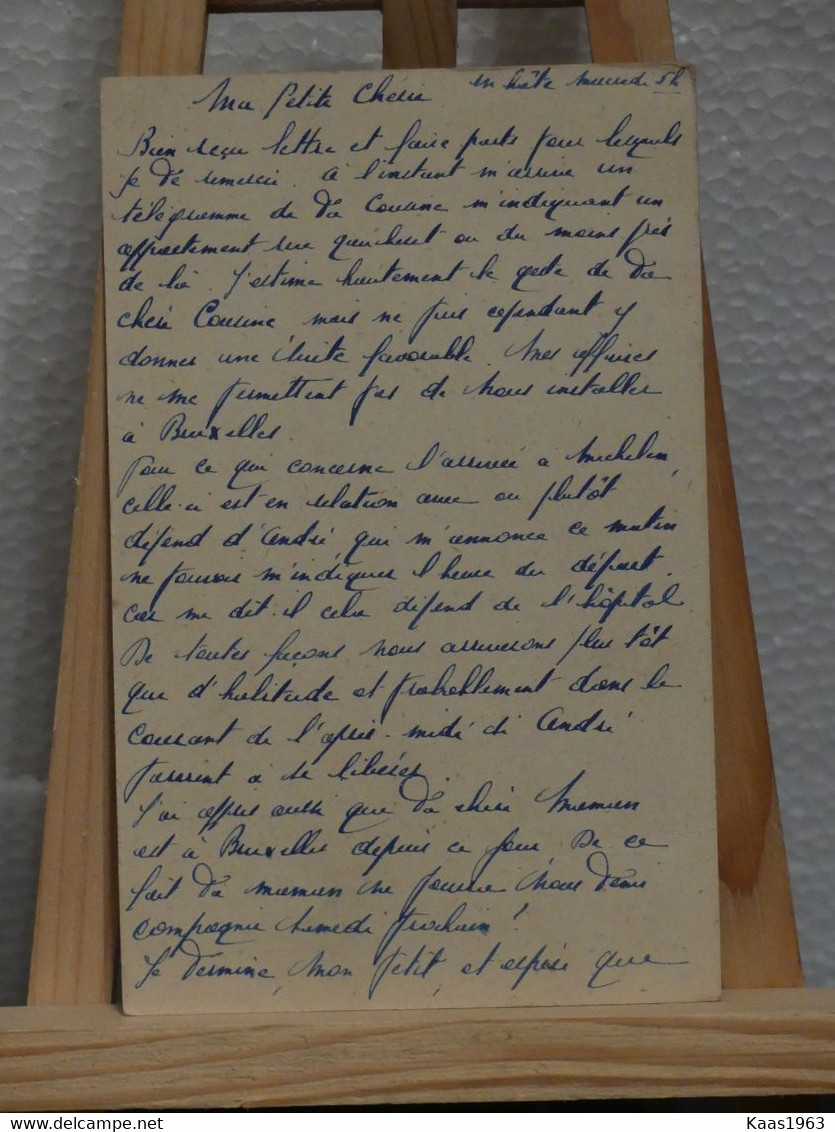 Ma Petite Chérie en hâte mercredi 5h
Bien reçu lettre et faire parts pour lesquels
je te remercie. A l'instant m'arrive un
télégramme de ta Cousine m'indiquant un
appartement rue ou du moins près
de là. J'estime hautement le geste de ta
chère Cousine mais ne puis cependant y
donner une suite favorable. Mes affaires
ne me permettent pas de nous installer
à Bruxelles.
Pour ce qui concerne l'arrivée à
celle-ci est en relation avec ou plutôt
dépend d'André qui m'annonce ce matin
ne pouvoir m'indiquer l'heure du départ
car me dit-il cela dépend de l'hôpital.
De toutes façons nous arriverons plus tôt
que d'habitude et probablement dans le
courant de l'après-midi si André
parvient à se libérer.
J'ai appris aussi que ta chère Maman
est à Bruxelles depuis ce jour. De ce
fait ta maman ne pourra nous tenir
compagnie samedi prochain!
Je termine, mon petit, et espère que
Kaas1963